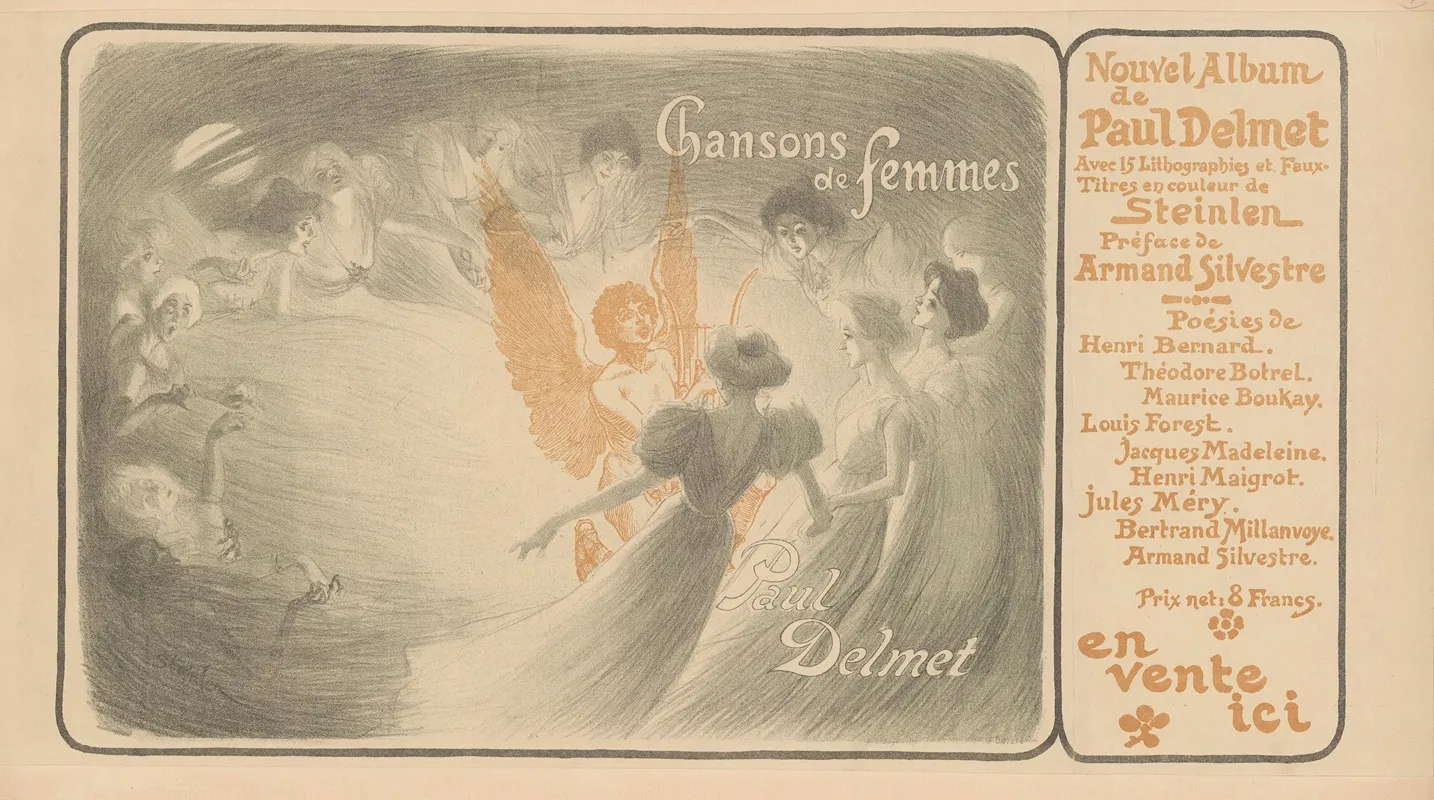 Chansons
de femmes
Paul
Delmet
Steinlen
Nouvel Album
de
Paul Delmet
Avec 15 Lithographies et Faux-
Titres en couleur de
Steinlen
Préface de
Armand Silvestre
Poésies de
Henri Bernard.
Théodore Botrel.
Maurice Boukay.
Louis Forest.
Jacques Madeleine.
Henri Maigrot.
Jules Méry.
Bertrand Millanvoye.
Armand Silvestre.
Prix net: 8 Francs.
en
vente
ici